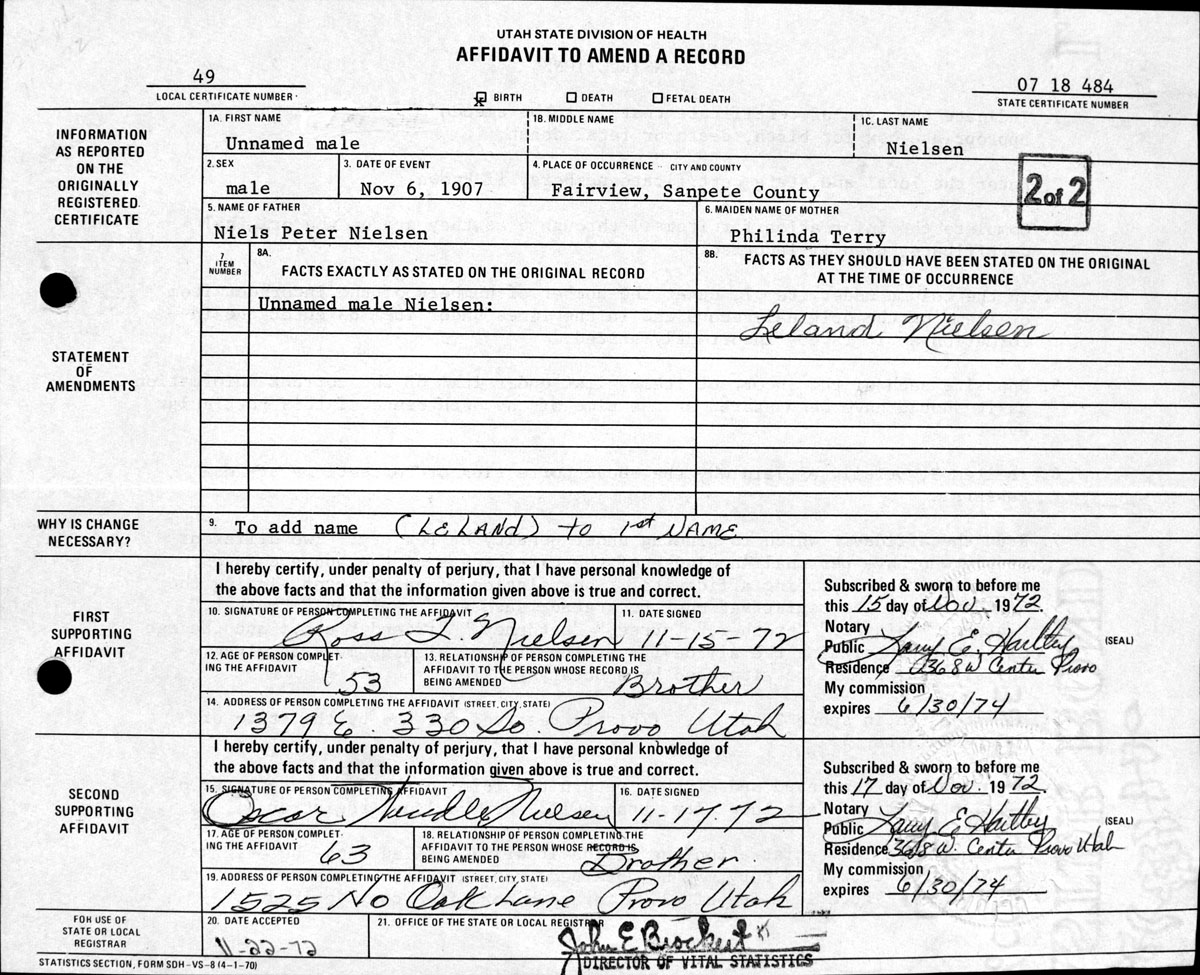 UTAH STATE DIVISION OF HEALTH
AFFIDAVIT TO AMEND A RECORD
49
LOCAL CERTIFICATE NUMBER
BIRTH DEATH FETAL DEATH
07 18 484
STATE CERTIFICATE NUMBER
INFORMATION AS REPORTED ON THE ORIGINALLY REGISTERED CERTIFICATE
1A. FIRST NAME 1B. MIDDLE NAME 1C. LAST NAME
Unnamed male Nielsen
2. SEX 3. DATE OF EVENT 4. PLACE OF OCCURRENCE - CITY AND COUNTY
male Nov 6, 1907 Fairview, Sanpete County
2 of 2
5. NAME OF FATHER 6. MAIDEN NAME OF MOTHER
Niels Peter Nielsen Philinda Terry
STATEMENT OF AMENDMENTS
7 ITEM NUMBER
8A. FACTS EXACTLY AS STATED ON THE ORIGINAL RECORD
8B. FACTS AS THEY SHOULD HAVE BEEN STATED ON THE ORIGINAL
AT THE TIME OF OCCURRENCE
Unnamed male Nielsen:
Leland Nielsen
WHY IS CHANGE NECESSARY?
9. To add name (LELAND) to 1st NAME
FIRST SUPPORTING AFFIDAVIT
I hereby certify, under penalty of perjury, that I have personal knowledge of
the above facts and that the information given above is true and correct.
10. SIGNATURE OF PERSON COMPLETING THE AFFIDAVIT 11. DATE SIGNED
Ross T. Nielsen 11-15-72
12. AGE OF PERSON COMPLETING THE AFFIDAVIT
53
13. RELATIONSHIP OF PERSON COMPLETING THE
AFFIDAVIT TO THE PERSON WHOSE RECORD IS
BEING AMENDED
Brother
14. ADDRESS OF PERSON COMPLETING THE AFFIDAVIT (STREET, CITY, STATE)
1379 E. 330 So. Provo Utah
Subscribed & sworn to before me
this 15 day of Nov. 1972.
Notary
Public Larry E. Hartley (SEAL)
Residence 368 W Center Provo
My commission
expires 6/30/74
SECOND SUPPORTING AFFIDAVIT
I hereby certify, under penalty of perjury, that I have personal knowledge of
the above facts and that the information given above is true and correct.
15. SIGNATURE OF PERSON COMPLETING AFFIDAVIT 16. DATE SIGNED
Oscar Nielsen 11-17-72
17. AGE OF PERSON COMPLETING THE AFFIDAVIT
63
18. RELATIONSHIP OF PERSON COMPLETING THE
AFFIDAVIT TO THE PERSON WHOSE RECORD IS
BEING AMENDED
Brother.
19. ADDRESS OF PERSON COMPLETING THE AFFIDAVIT (STREET, CITY, STATE)
1525 No Oak Lane Provo Utah
Subscribed & sworn to before me
this 17 day of Nov. 1972.
Notary
Public Larry E Hartley (SEAL)
Residence 368 W. Center Provo Utah
My commission
expires 6/30/74
FOR USE OF STATE OR LOCAL REGISTRAR
20. DATE ACCEPTED 21. OFFICE OF THE STATE OR LOCAL REGISTRAR
11-22-72 John E Brockert
DIRECTOR OF VITAL STATISTICS
STATISTICS SECTION, FORM SDH-VS-8 (4-1-70)